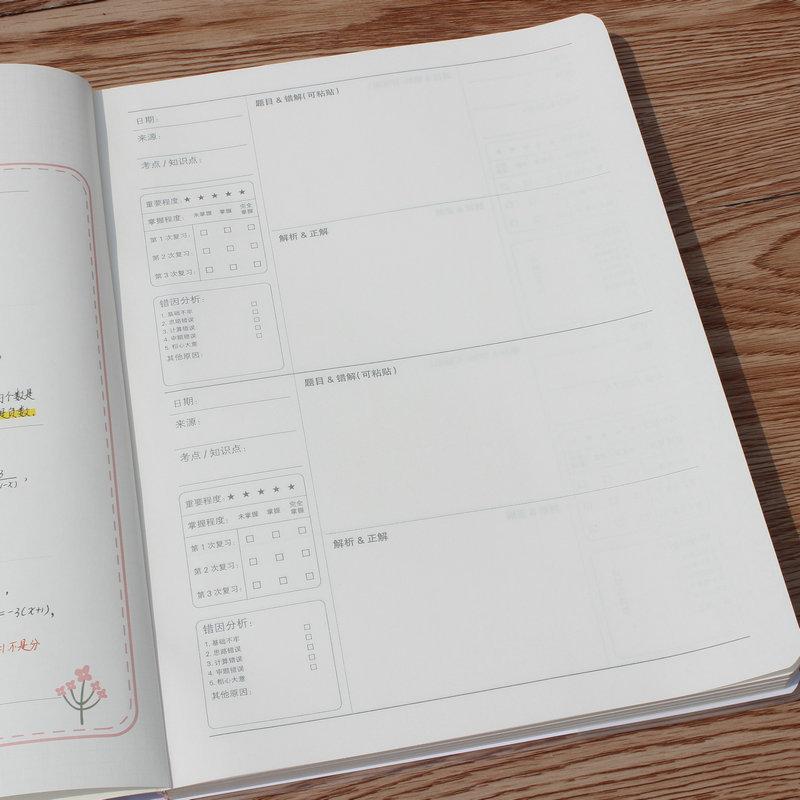 个数是
负数.
=-3(x+1),
不是分
日期:
来源:
考点 / 知识点:
重要程度: ★ ★ ★ ★ ★
掌握程度: 未掌握 掌握 完全掌握
第 1 次复习: □ □ □
第 2 次复习: □ □ □
第 3 次复习: □ □ □
错因分析:
1. 基础不牢 □
2. 思路错误 □
3. 计算错误 □
4. 审题错误 □
5. 粗心大意 □
其他原因:
题目 & 错解(可粘贴)
解析 & 正解
日期:
来源:
考点 / 知识点:
重要程度: ★ ★ ★ ★ ★
掌握程度: 未掌握 掌握 完全掌握
第 1 次复习: □ □ □
第 2 次复习: □ □ □
第 3 次复习: □ □ □
错因分析:
1. 基础不牢 □
2. 思路错误 □
3. 计算错误 □
4. 审题错误 □
5. 粗心大意 □
其他原因:
题目 & 错解(可粘贴)
解析 & 正解